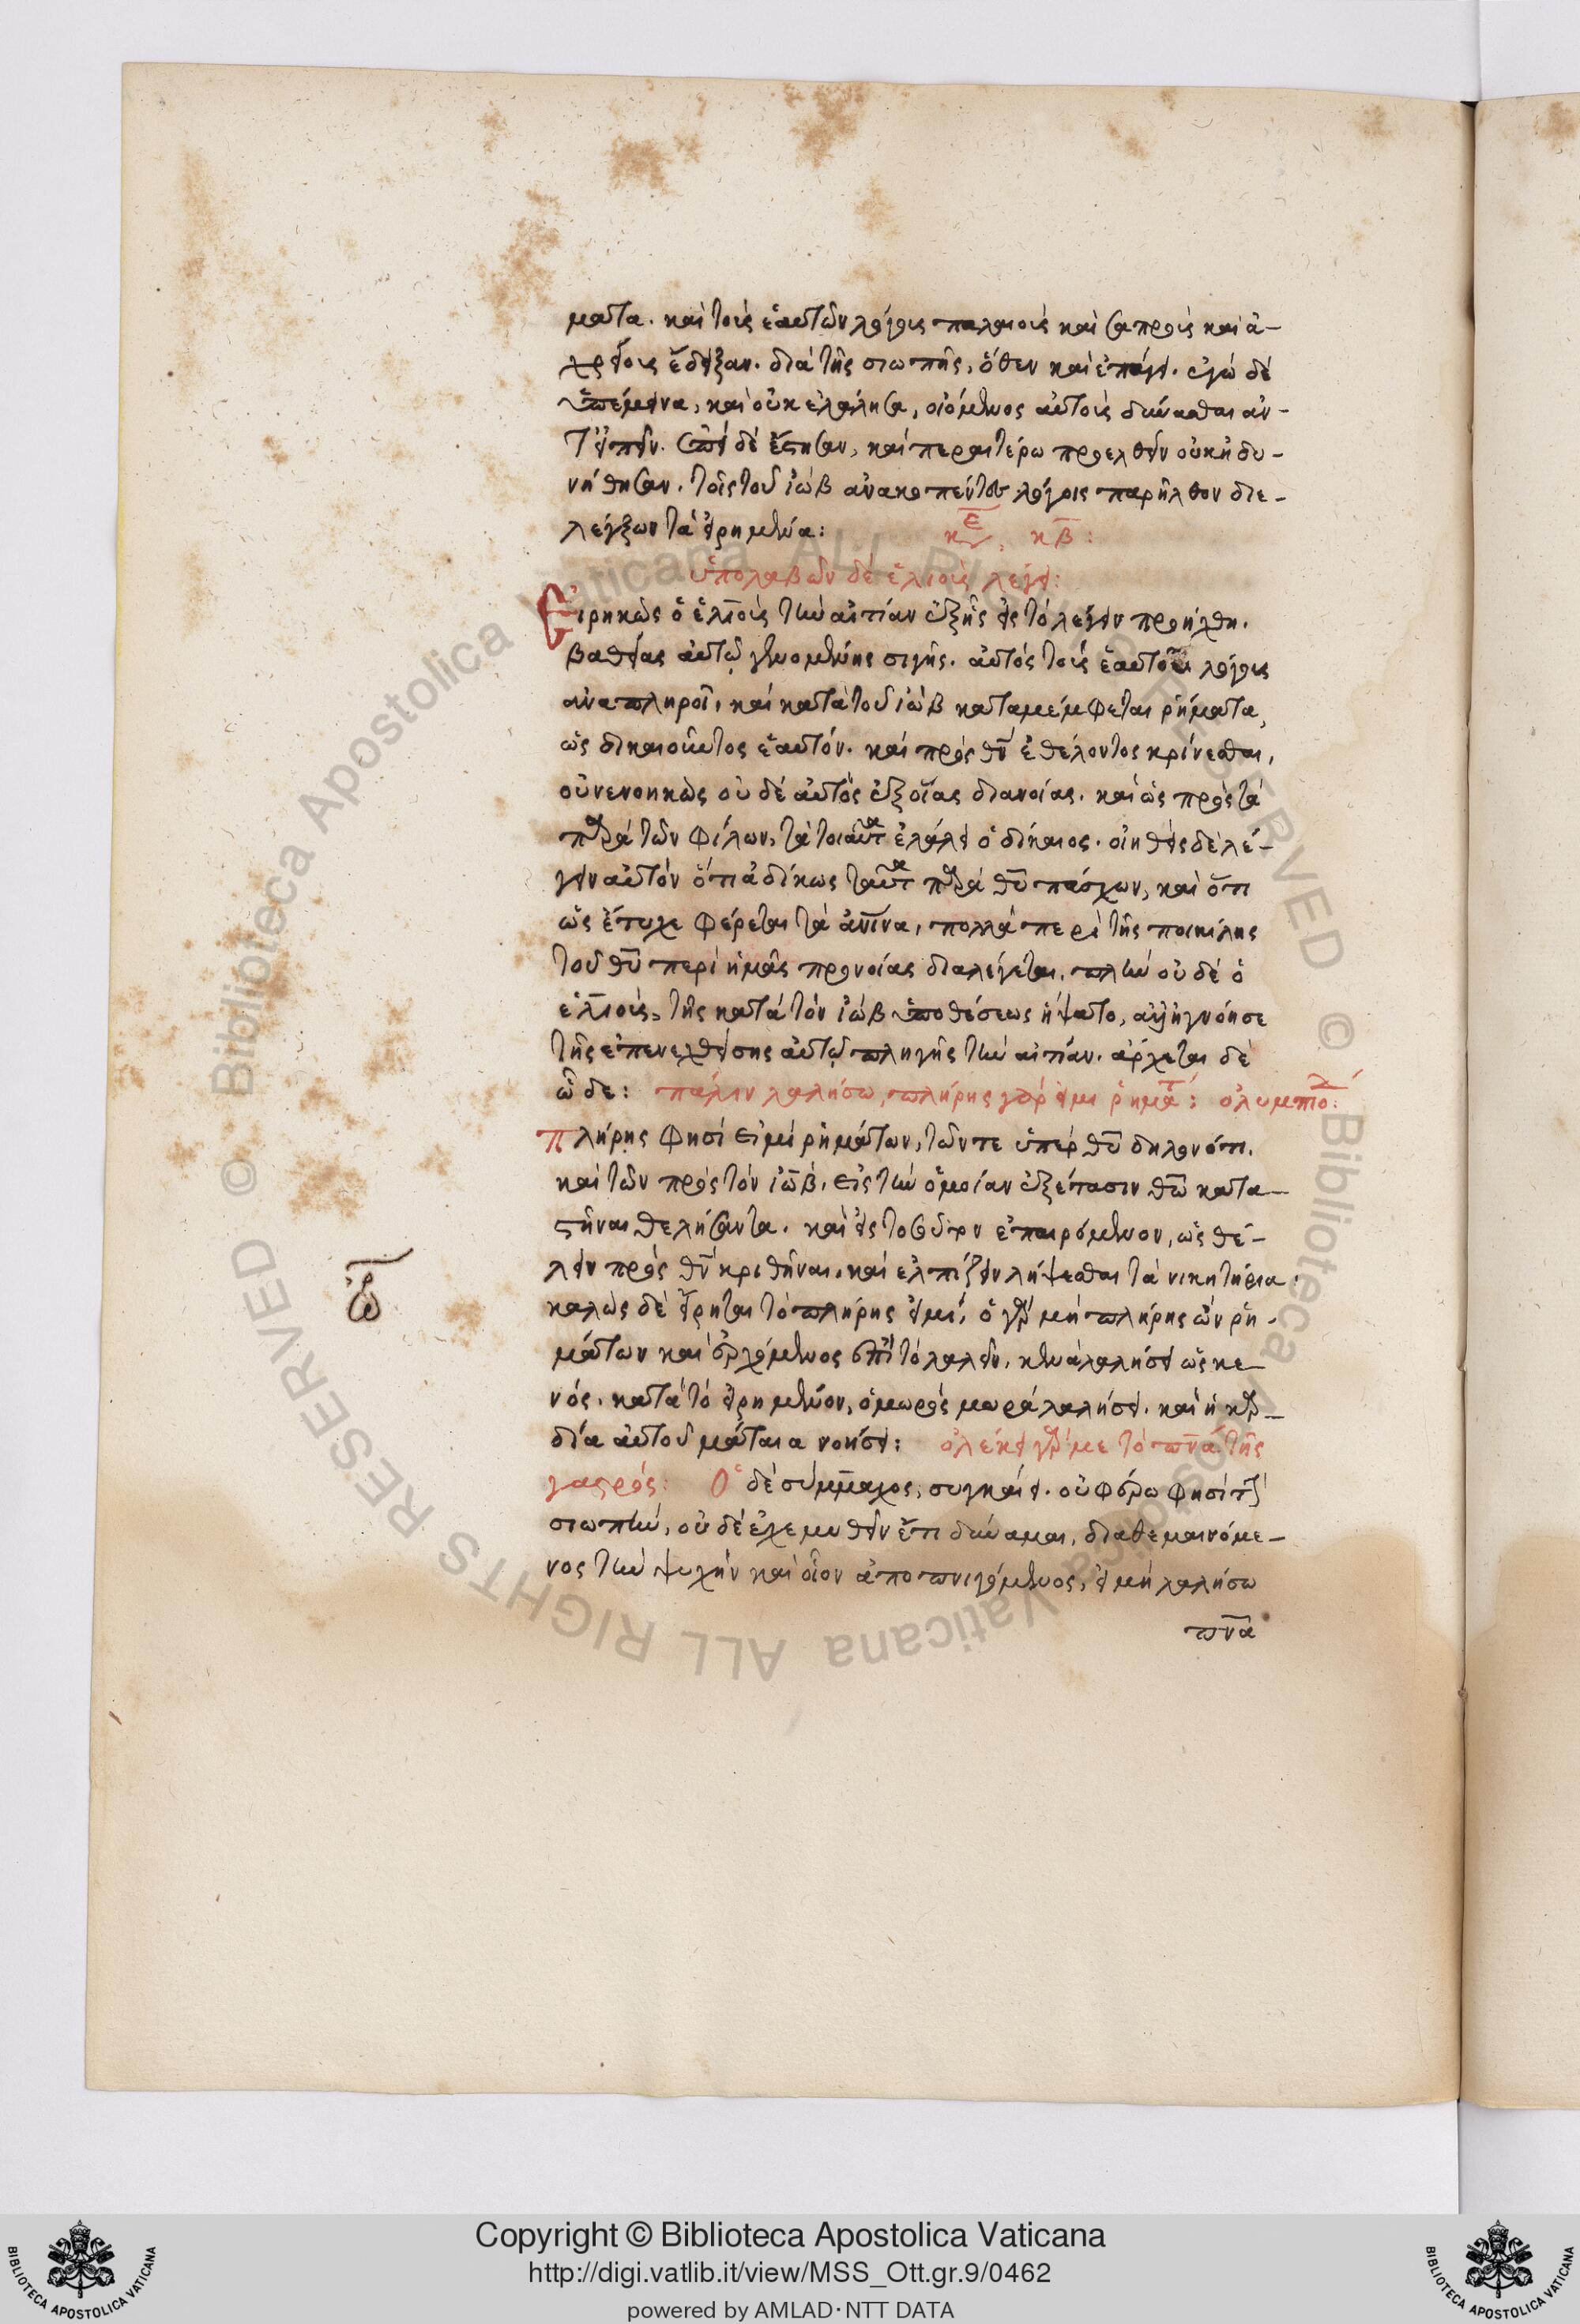 ματα. καὶ τοῖς ἑαυτῶν λόγοις παλαιοῖς καὶ σαπροῖς καὶ ἀ-
χρείοις ἔδειξαν. διὰ τῆς σιωπῆς, ὅθεν καὶ ἐπάγει. ἐγὼ δὲ
ὑπέμεινα, καὶ οὐκ ἐλάλησα, οἰόμενος αὐτοῖς δύνασθαι ἀν-
τειπεῖν. ἐπεὶ δὲ ἔστησαν, καὶ περαιτέρω προελθεῖν οὐκ ἠδυ-
νήθησαν. τοῖς τοῦ ἰὼβ ἀνακοπέντες λόγοις παρῆλθον διε-
λέγξων τὰ εἰρημένα:
κε, κβ:
ὑπολαβὼν δὲ ἐλιοῦς λέγει:
Εἰρηκὼς ὁ ἐλιοῦς τὴν αἰτίαν ἐξῆς εἰς τὸ λέγειν προήχθη.
βαθείας αὐτῷ γενομένης σιγῆς. αὐτὸς τοῖς ἑαυτοῦ λόγοις
ἀναπληροῖ, καὶ κατὰ τοῦ ἰὼβ καταμέμφεται ῥήματα,
ὡς δικαιοῦντος ἑαυτόν. καὶ πρὸς θν ἐθέλοντος κρίνεσθαι,
οὐ νενοηκὼς οὐδὲ αὐτὸς ἐξ οἵας διανοίας. καὶ ὡς πρὸς τὰ
παρὰ τῶν φίλων, τὰ τοιαῦτα ἐλάλει ὁ δίκαιος. οἰηθεὶς δὲ λέ-
γειν αὐτὸν ὅτι ἀδίκως ταῦτα παρὰ θυ πάσχων, καὶ ὅτι
ὡς ἔτυχε φέρεται τὰ ἀνινα, πολλὰ περὶ τῆς ποικίλης
τοῦ θυ περὶ ἡμᾶς προνοίας διαλέγεται. πλὴν οὐδὲ ὁ
ἐλιοῦς, τῆς κατὰ τὸν ἰὼβ ὑποθέσεως ἥψατο, ἀλλ' ἠγνόησε
τῆς ἐπενεχθείσης αὐτῷ πληγῆς τὴν αἰτίαν. ἄρχεται δὲ
ὧδε: πάλιν λαλήσω, πλήρης γάρ εἰμι ῥημάτ: ὀλυμπιο:
πλήρης φησὶ εἰμὶ ῥημάτων, τῶν τε ὑπὲρ θυ δηλονότι.
καὶ τῶν πρὸς τὸν ἰὼβ. εἰς τὴν ὁμοίαν ἐξέτασιν θω κατα-
στῆναι θελήσαντα. καὶ εἰς τοσοῦτον ἐπαιρόμενον, ὡς θέ-
λειν πρὸς θν κριθῆναι, καὶ ἐλπίζειν λήψεσθαι τὰ νικητήρια.
καλῶς δὲ εἴρηται τὸ πλήρης εἰμί, ὁ γὰρ μὴ πλήρης ὢν ῥη-
μάτων καὶ ἐρχόμενος ἐπὶ τὸ λαλεῖν, κενὰ λαλήσει ὡς κε-
νός. κατὰ τὸ εἰρημένον, ὁ μωρὸς μωρὰ λαλήσει. καὶ ἡ καρ-
δία αὐτοῦ μάταια νοήσει: ὀλέκει γάρ με τὸ πνα τῆς
γαστρός: Ὁ δὲ σύμμαχος, συγκαίει. οὐ φέρω φησί
σιωπὴν, οὐδὲ ἐχεμυθεῖν ἔτι δύναμαι, διαθερμαινόμε-
νος τὴν ψυχὴν καὶ οἷον ἀποπνιγόμενος, εἰ μὴ λαλήσω
πνα
Copyright © Biblioteca Apostolica Vaticana
http://digi.vatlib.it/view/MSS_Ott.gr.9/0462
powered by AMLAD·NTT DATA
BIBLIOTECA APOSTOLICA VATICANA
BIBLIOTECA APOSTOLICA VATICANA
© Biblioteca Apostolica Vaticana ALL RIGHTS RESERVED © Biblioteca Apostolica Vaticana ALL RIGHTS RESERVED